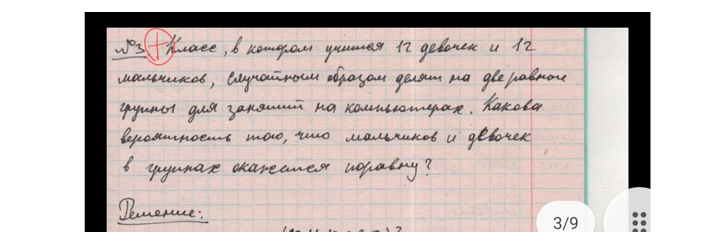 №3. Класс, в котором учится 12 девочек и 12
мальчиков, случайным образом делят на две равные
группы для занятий на компьютерах. Какова
вероятность того, что мальчиков и девочек
в группах окажется поровну?
Решение:
3/9